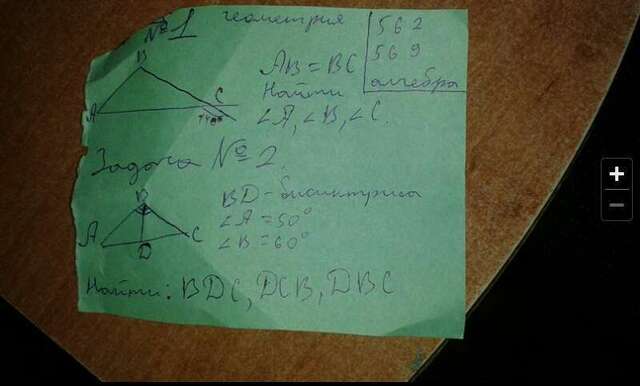 №1 геометрия
562
569
алгебра
B
A
C
140°
AB = BC
Найти
∠A, ∠B, ∠C.
Задача №2.
B
A
C
D
BD - биссектриса
∠A = 50°
∠B = 60°
Найти: BDC, DCB, DBC